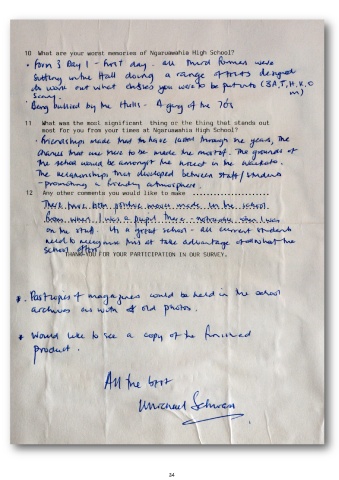 10 What are your worst memories of Ngaruawahia High School?
• Form 3 Day 1 - First day. all Third Formers were
sitting in the Hall doing a range of tests designed
to work out what class you were to be put into (3A, T, H, K, O
Scary. m)
• Being bullied by the Hulls - A gang of the 70s
11 What was the most significant thing or the thing that stands out
most for you from your times at Ngaruawahia High School?
• Friendships made that to have lasted through the years, The
chances that are there to be made the most of. The grounds of
the school would be amongst the nicest in the Waikato.
The relationships that developed between staff/students
- promoting a friendly atmosphere.
12 Any other comments you would like to make
There have been positive moves made in the school
from when I was a pupil there - when I was
on the staff. Its a great school - all current students
need to recognise this at take advantage of what the
school offers.
THANK YOU FOR YOUR PARTICIPATION IN OUR SURVEY.
* . Past copies of magazines could be held in the school
archives as with of old photos.
* Would like to see a copy of the finished
product.
All the best
Michael
34